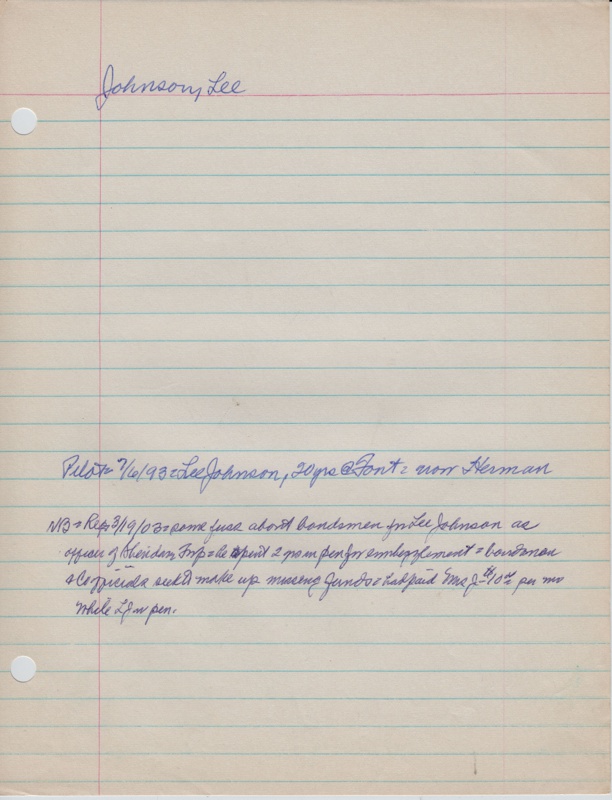 Johnson, Lee
Pilot = 7/6/93 = Lee Johnson, 20 yrs @ Font = now Herman
NB = Rep 3/19/03 = some fuss about bondsmen for Lee Johnson as
officer of Sheridan Twp = he spent 2 in pen for embezzlement = bondsmen
& Co officials seek to make up missing funds = had paid Mrs J $10 per mo
while LJ in pen.